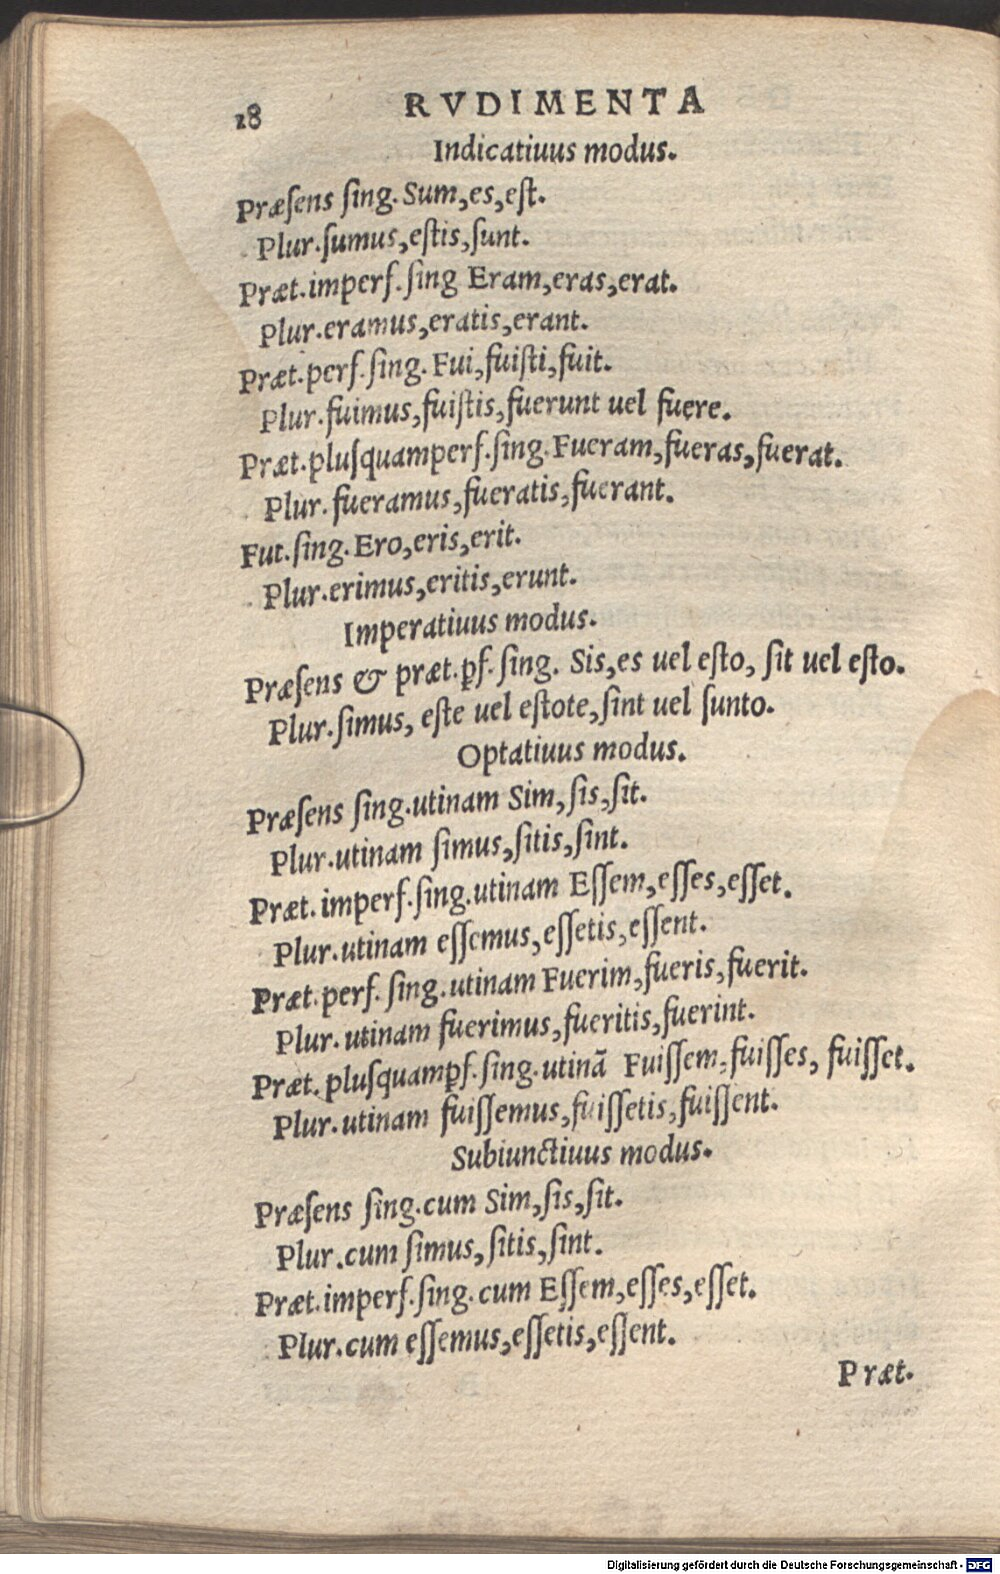 18 RVDIMENTA
Indicatiuus modus.
Præſens ſing. Sum, es, eſt.
Plur. ſumus, eſtis, ſunt.
Præt. imperf. ſing Eram, eras, erat.
Plur. eramus, eratis, erant.
Præt. perf. ſing. Fui, fuiſti, fuit.
Plur. fuimus, fuiſtis, fuerunt uel fuere.
Præt. pluſquamperf. ſing. Fueram, fueras, fuerat.
Plur. fueramus, fueratis, fuerant.
Fut. ſing. Ero, eris, erit.
Plur. erimus, eritis, erunt.
Imperatiuus modus.
Præſens & præt. ꝑf. ſing. Sis, es uel eſto, ſit uel eſto.
Plur. ſimus, eſte uel eſtote, ſint uel ſunto.
Optatiuus modus.
Præſens ſing. utinam Sim, ſis, ſit.
Plur. utinam ſimus, ſitis, ſint.
Præt. imperf. ſing. utinam Eſſem, eſſes, eſſet.
Plur. utinam eſſemus, eſſetis, eſſent.
Præt. perf. ſing. utinam Fuerim, fueris, fuerit.
Plur. utinam fuerimus, fueritis, fuerint.
Præt. pluſquamꝑf. ſing. utinã Fuiſſem, fuiſſes, fuiſſet.
Plur. utinam fuiſſemus, fuiſſetis, fuiſſent.
Subiunctiuus modus.
Præſens ſing. cum Sim, ſis, ſit.
Plur. cum ſimus, ſitis, ſint.
Præt. imperf. ſing. cum Eſſem, eſſes, eſſet.
Plur. cum eſſemus, eſſetis, eſſent.
Præt.
Digitalisierung gefördert durch die Deutsche Forschungsgemeinschaft - DFG